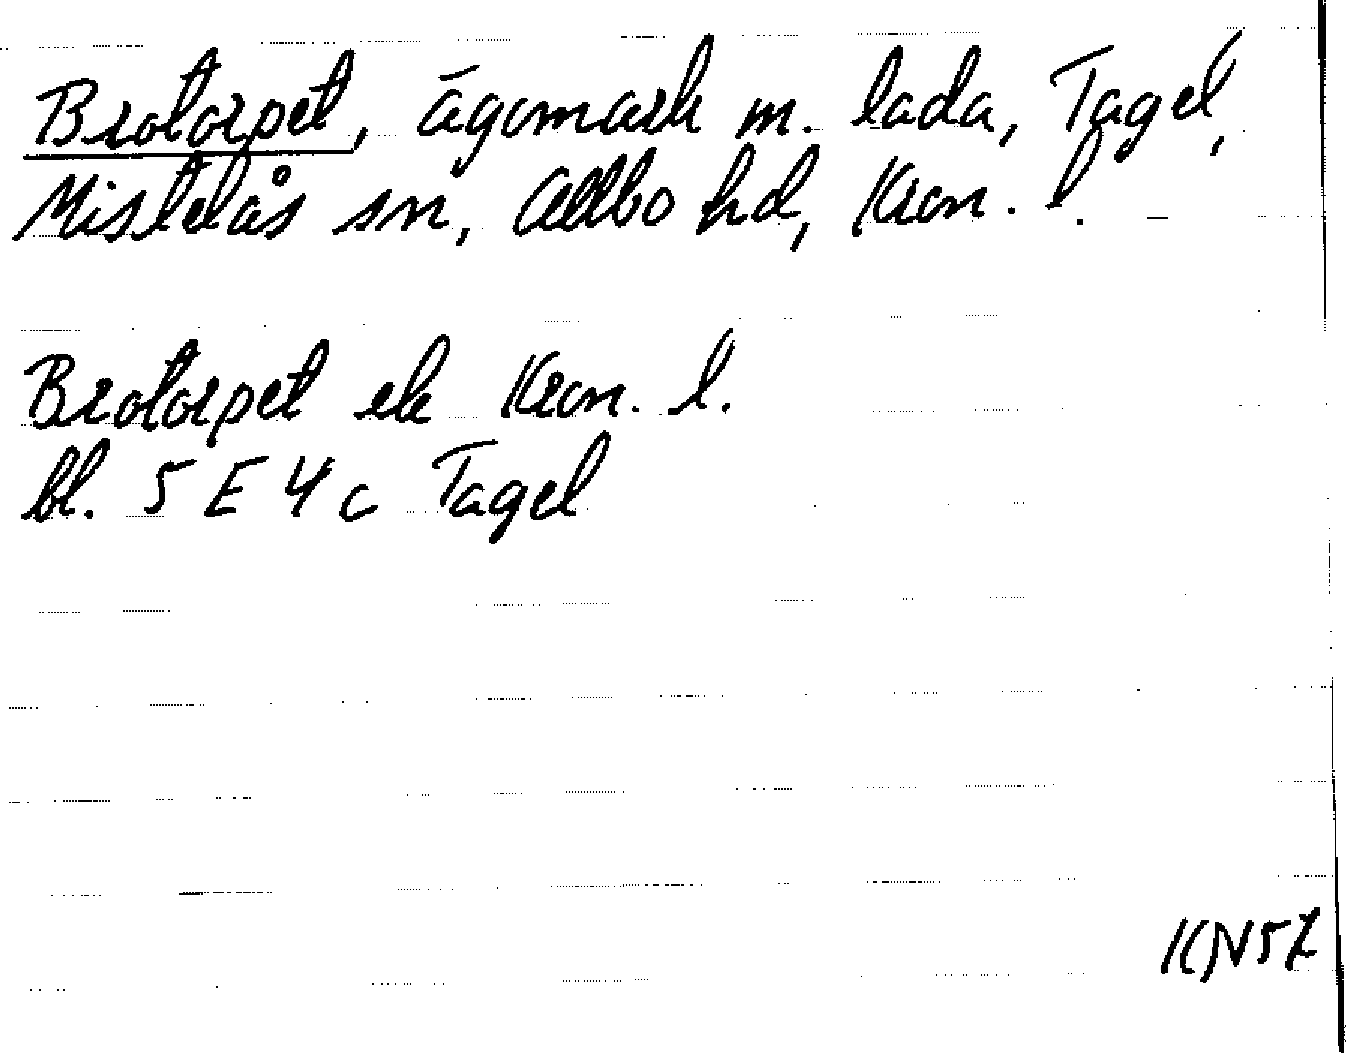 Brotorpet, ägomark m. lada, Tagel,
Mistelås sn, Allbo hd, Kron. l. –
Brotorpet ek Kron. l.
bl. 5 E 4 c Tagel